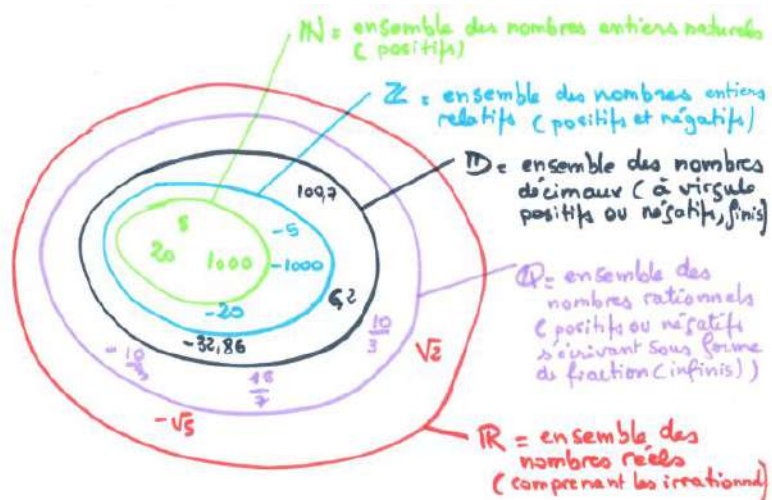 ℕ = ensemble des nombres entiers naturels
( positifs)
ℤ = ensemble des nombres entiers
relatifs ( positifs et négatifs)
𝔻 = ensemble des nombres
décimaux ( à virgule
positifs ou négatifs, finis)
ℚ = ensemble des
nombres rationnels
( positifs ou négatifs
s'écrivant sous forme
de fraction (infinis))
ℝ = ensemble des
nombres réels
(comprenant les irrationnel)
100,7
-5
20
1000
-1000
-20
-32,86
10/3
√2
-√5